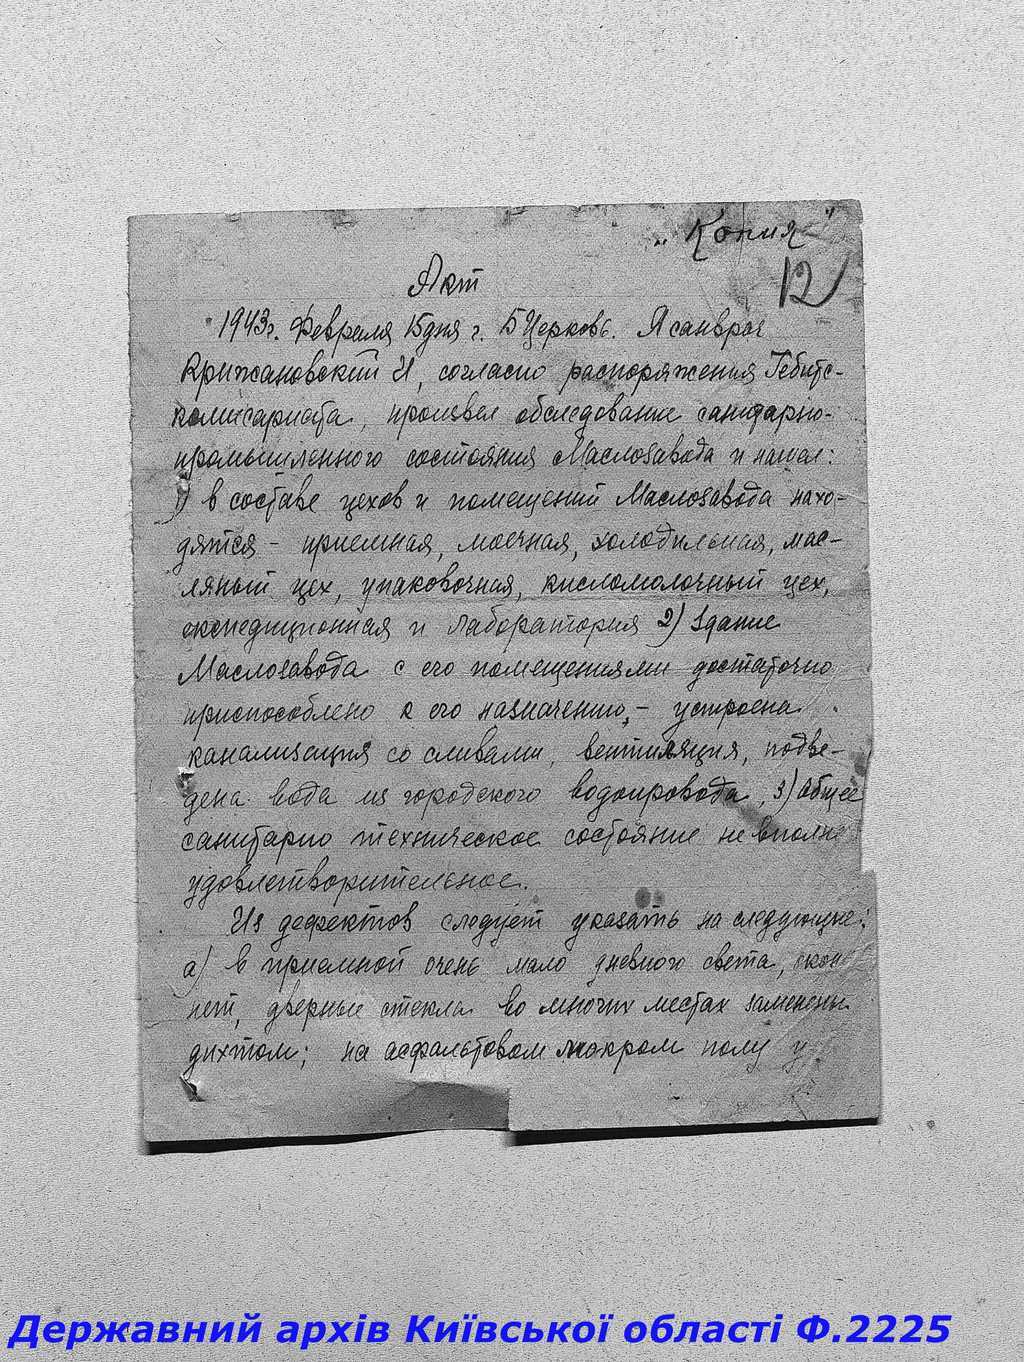 „Копия"
12
Акт
1943г. Февраля 15 дня г. Б Церковь. Я санврач
Крижановский И, согласно распоряжения Гебитс-
комисариата, произвел обследование санитарно-
промышленного состояния Маслозавода и нашел:
1) в составе цехов и помещений Маслозавода нахо-
дятся - приемная, моечная, холодильная, мас-
ляный цех, упаковочная, кисломолочный цех,
експедиционная и лаборатория 2) Здание
Маслозавода с его помещениями достаточно
приспособлено к его назначению, - устроена
канализация со сливами, вентиляция, подве-
дена вода из городского водопровода, 3) Общее
санитарно техническое состояние не вполне
удовлетворительное.
Из дефектов следует указать на следующие:
а) в приемной очень мало дневного света, окон
нет, дверные стекла во многих местах заменены
дихтом; на асфальтовом мокром полу у
Державний архів Київської області Ф.2225